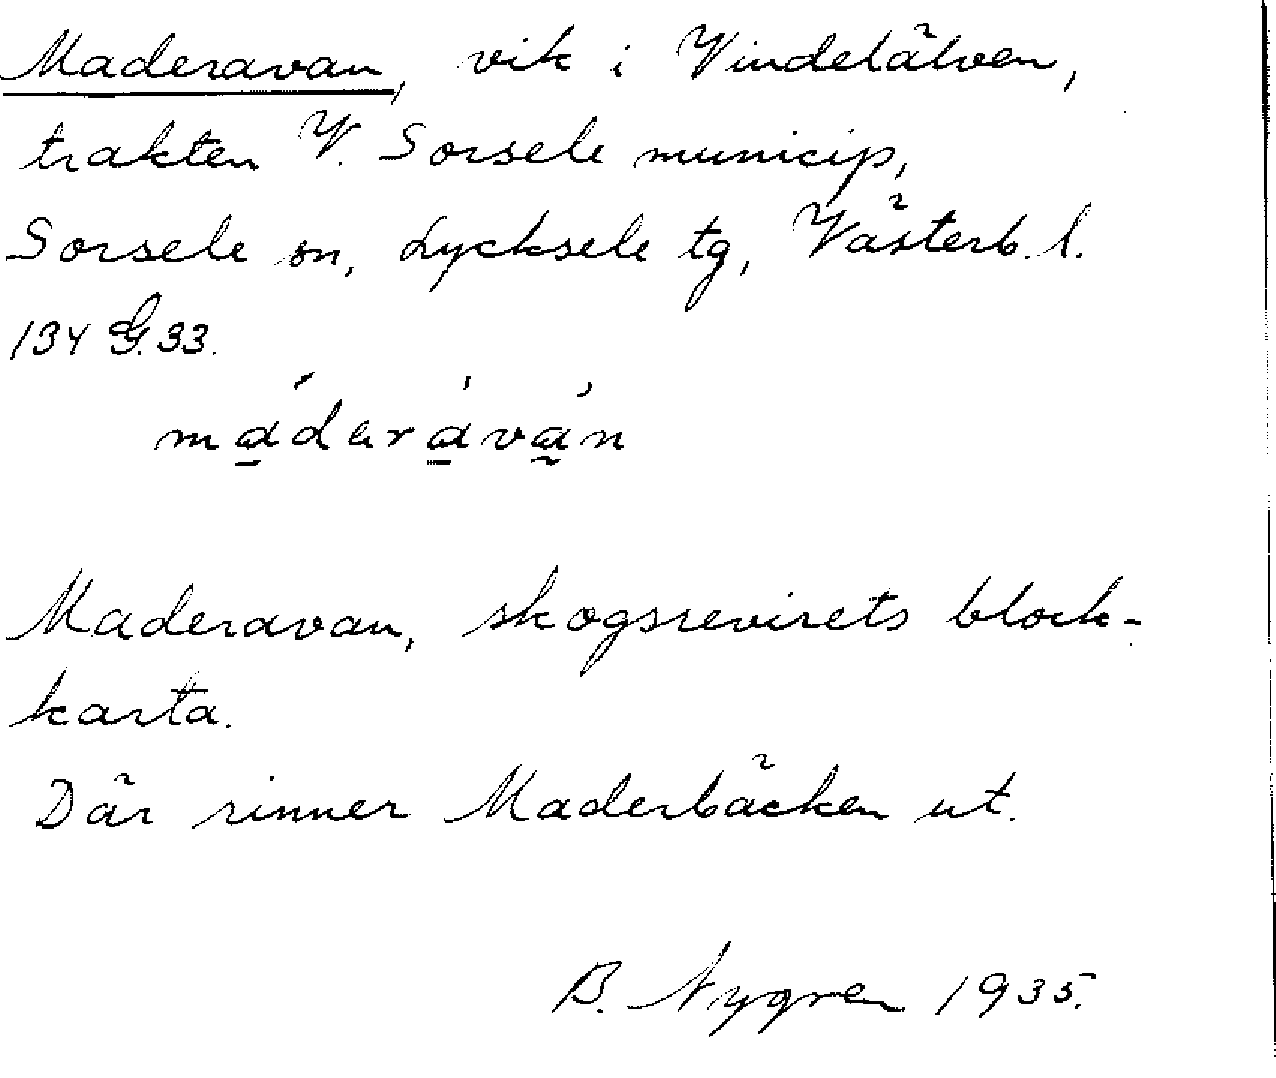 Maderavan, vik i Vindelälven,
trakten V. Sorsele municip,
Sorsele sn, Lycksele tg, Västerb. l.
134 G. 33.
Maderavan, skogsrevirets block-
karta.
Där rinner Maderbäcken ut.
B. Nygren 1935.